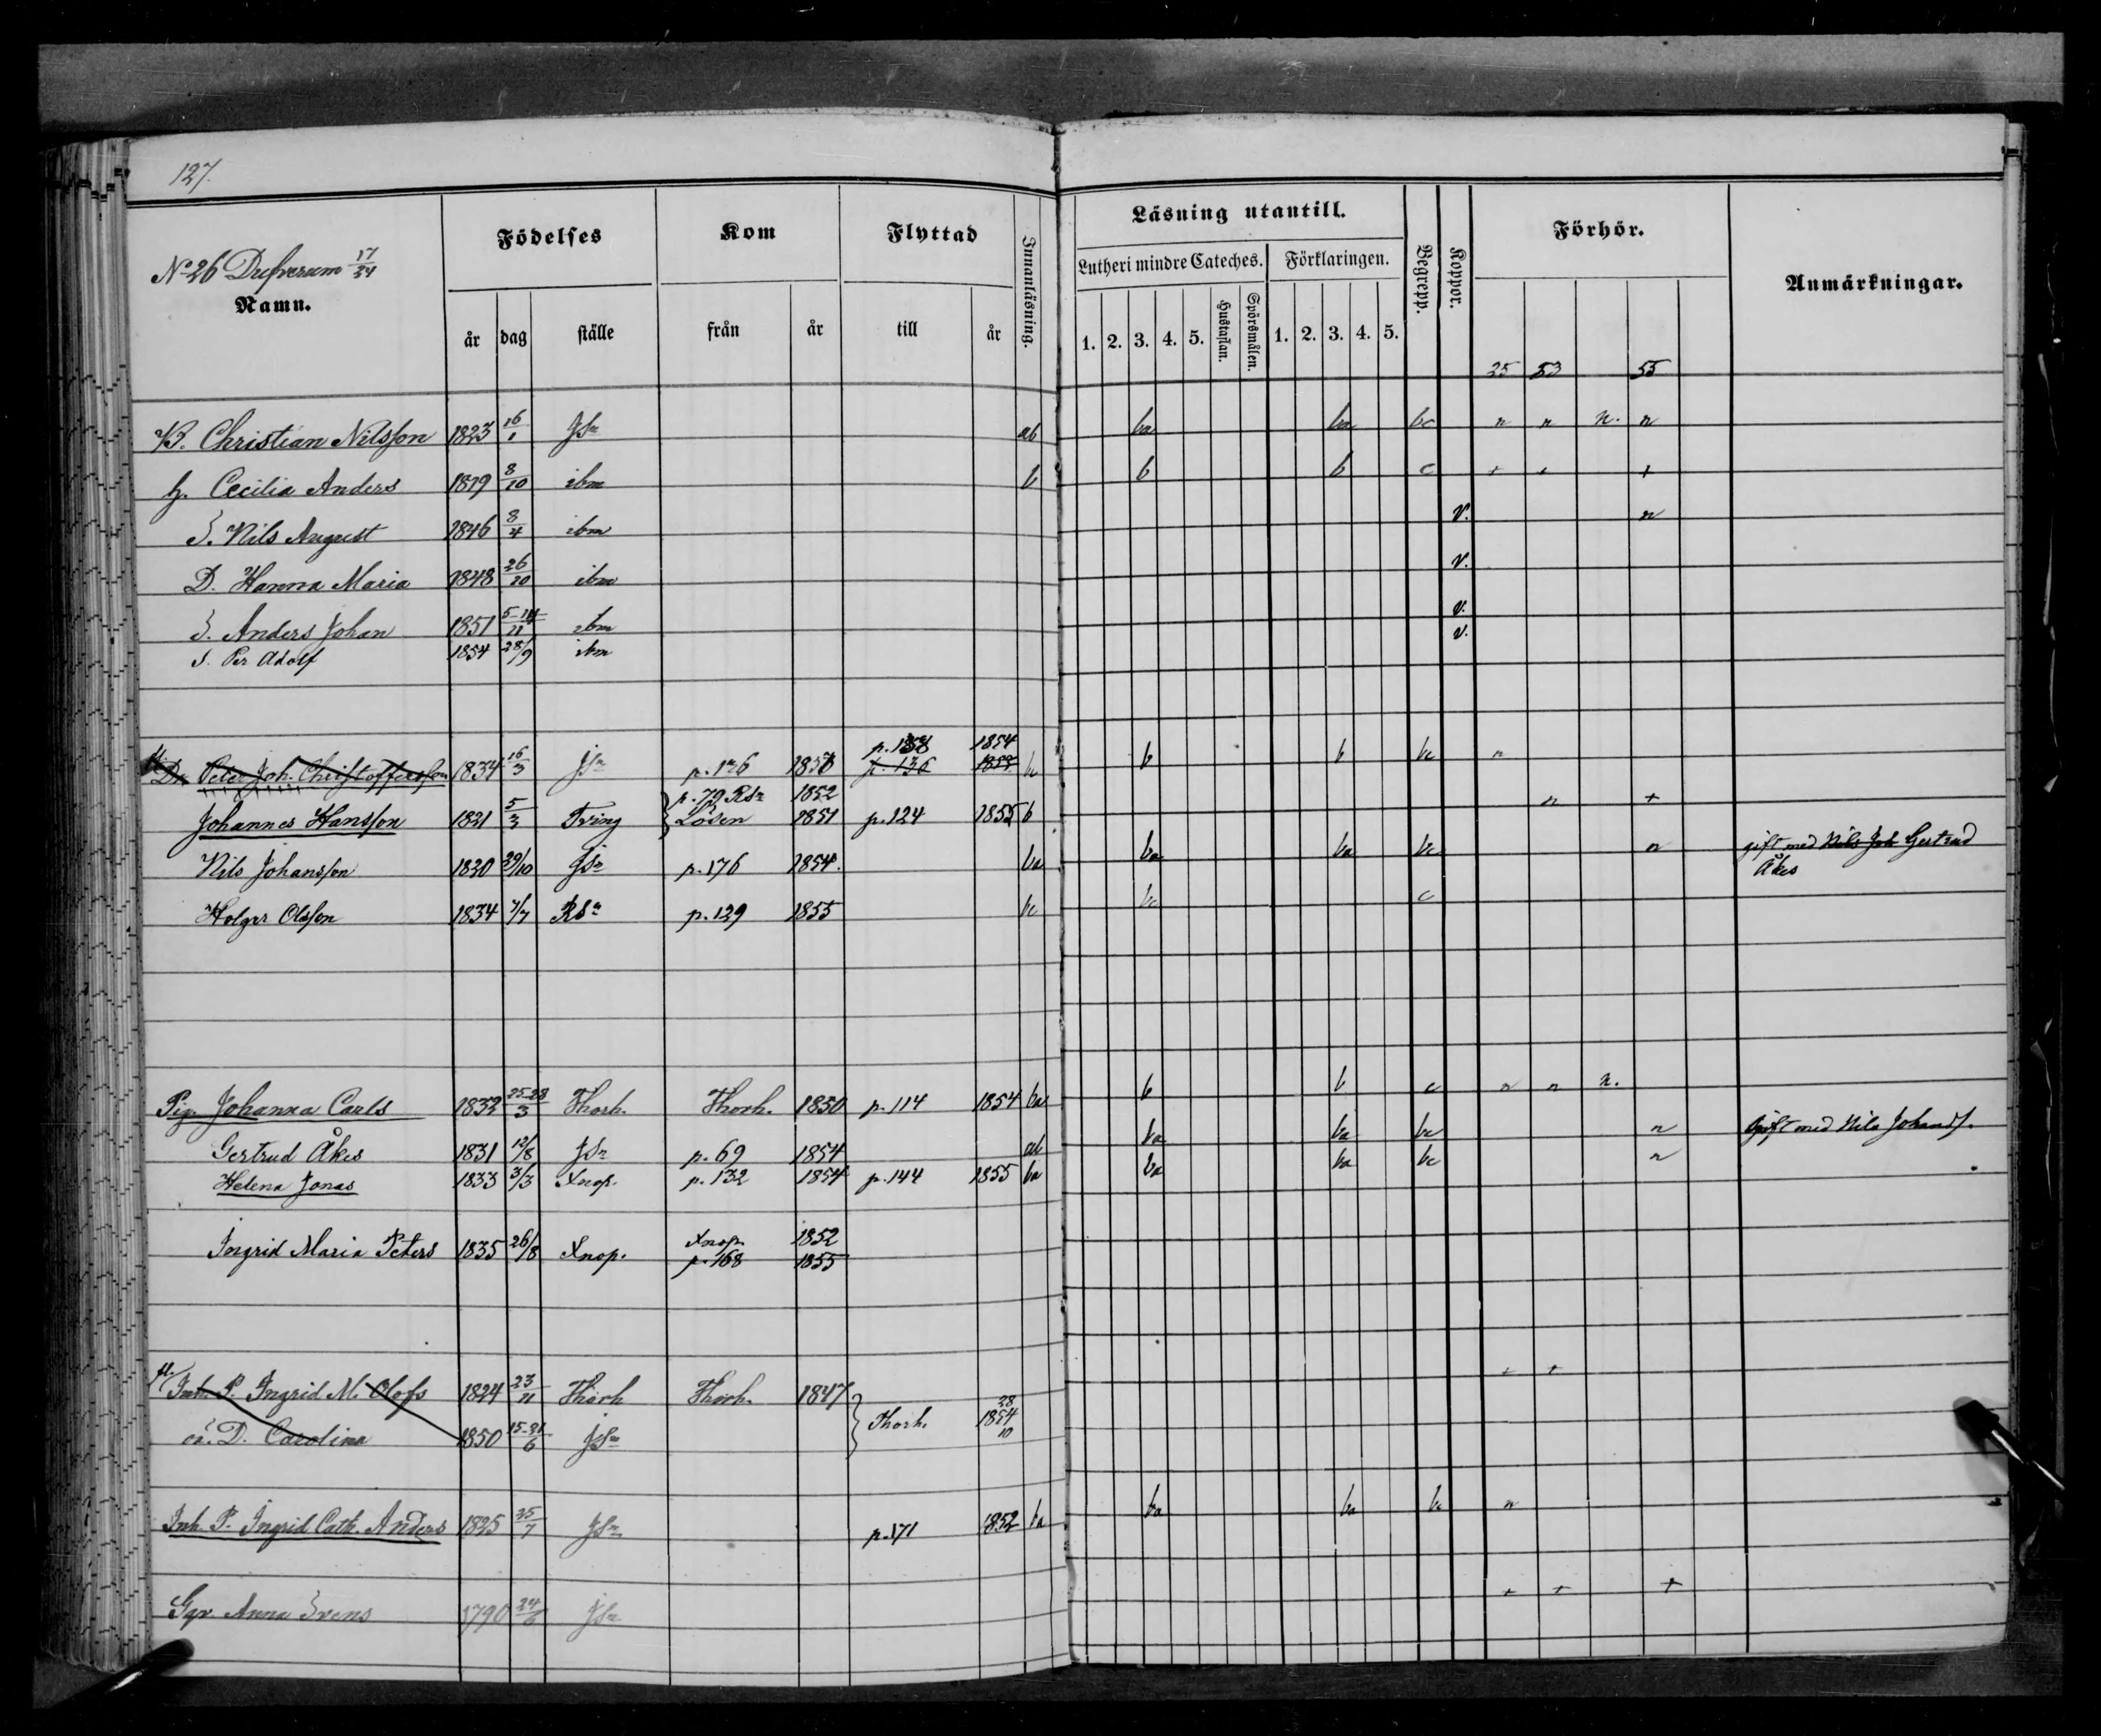 127.
Födelses Kom Flyttad Innanläsning. Läsning utantill. Begrepp. Koppor. Förhör. Anmärkningar.
No 26 17/24
Namn.
år dag ställe från år till år
Lutheri mindre Cateches. Förklaringen.
1. 2. 3. 4. 5. Hustaflan. Spörsmålen. 1. 2. 3. 4. 5.
25 53 55
Christian Nilsson 1823 16/1 JSn ab ba ba bc n n n. n
h. Cecilia Anders 1819 8/10 ibm b b b c + + +
S. Nils August 1846 8/4 ibm v. n
D. Hanna Maria 1848 26/10 ibm v.
S. Anders Johan 1851 5-14/11 ibm v.
S. Per Adolf 1854 28/9 ibm v.
p. 138 1854
Dr. Peter Joh. Christoffersson 1834 16/3 JSn p. 126 1850 p. 136 1853 bc b b bc n
p. 79 RSn 1852
Johannes Hansson 1821 5/3 Tving Lösen 1851 p. 124 1855 b n +
Nils Johansson 1830 29/10 JSn p. 176 1854. ba ba ba bc n gift med Nils Joh Gertrud
Åkes
Holger Olsson 1834 7/7 RSn p. 129 1855 bc bc c
Pig. Johanna Carls 1832 25-28/3 Thorh. Thorh. 1850 p. 114 1854 ba b b c n n n.
Gertrud Åkes 1831 12/8 JSn p. 69 1854 ab ba ba bc n Gift med Nils Johanss.
Helena Jonas 1833 3/3 Xnop. p. 132 1854 p. 144 1855 ba ba ba bc n
Xnop. 1852
Ingrid Maria Peters 1835 26/8 Xnop. p. 168 1855
Inh. P. Ingrid M. Olofs 1824 23/11 Thorh Thorh. 1847 + +
Thorh. 28/10 1854
oä. D. Carolina 1850 15-21/6 JSn
Inh. P. Ingrid Cath. Anders 1825 25/7 JSn p. 171 1852 ba ba ba bc n
Gqv Anna Svens 1790 24/6 JSn + + +